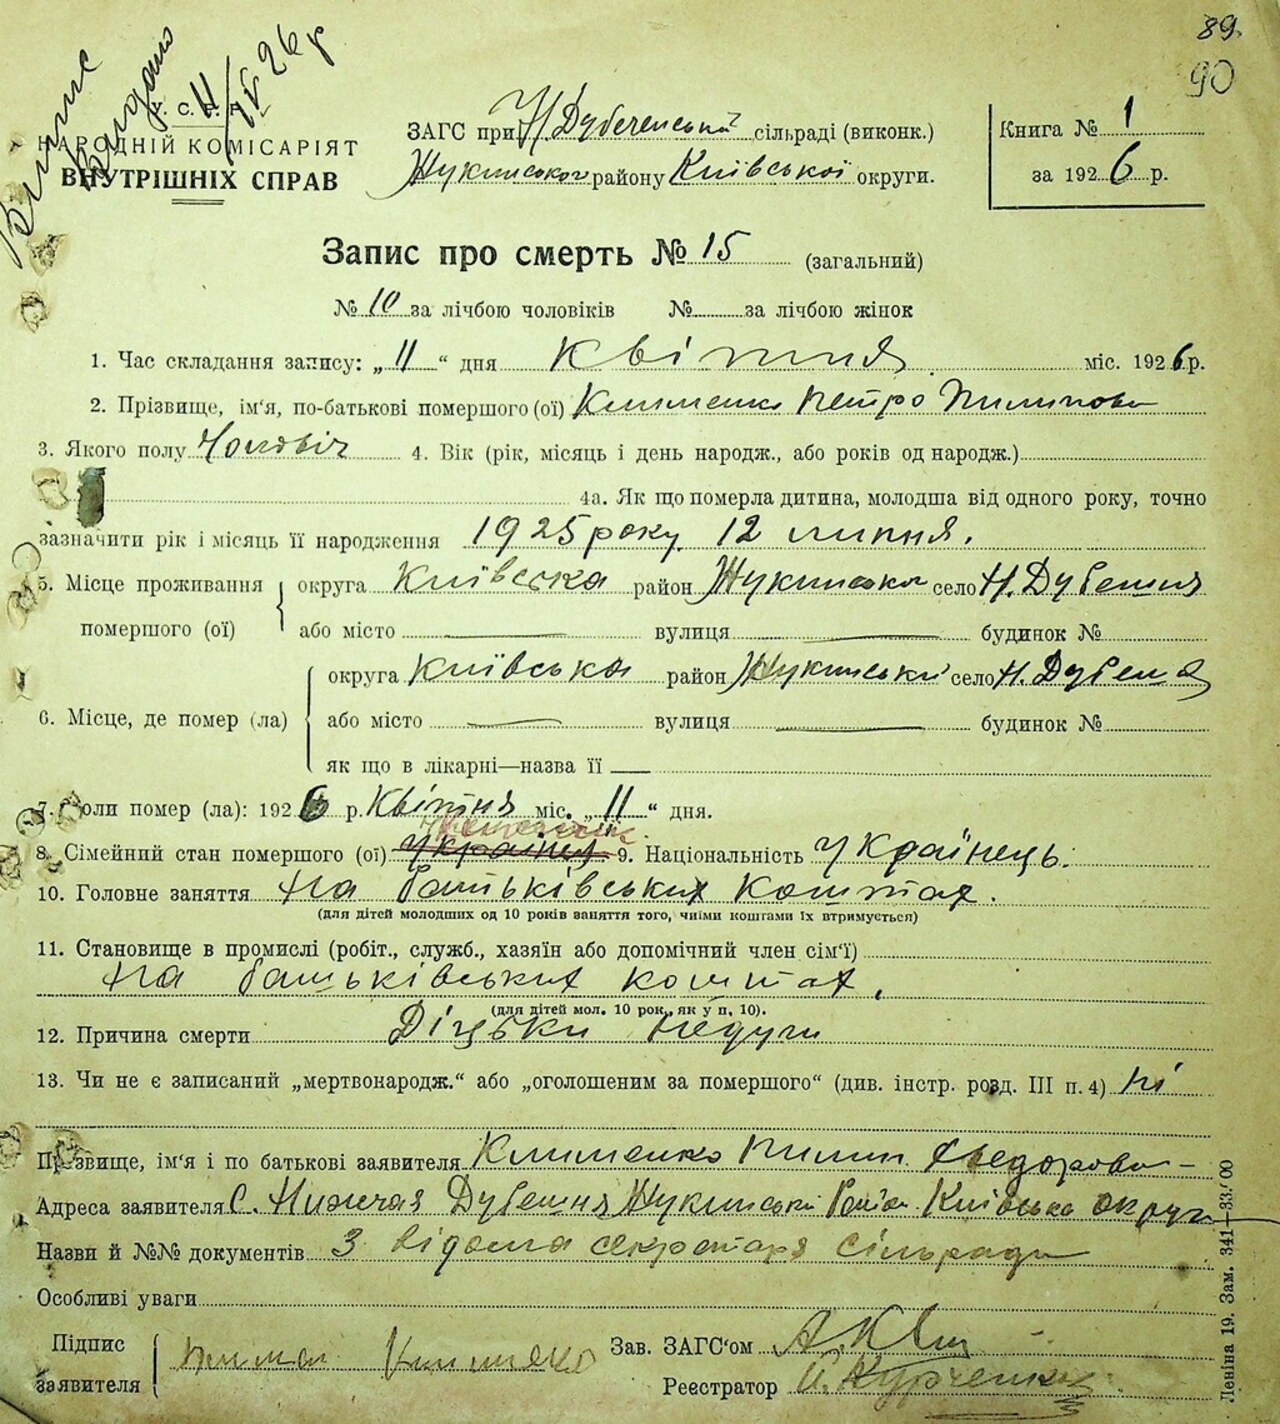 89.
90
Витяг видано 11/IV 26 р
У. С. Р. Р.
НАРОДНІЙ КОМІСАРІЯТ
ВНУТРІШНІХ СПРАВ
ЗАГС при Н Дубеченській сільраді (виконк.)
Жукинського району Київської округи.
Книга № 1
за 1926 р.
Запис про смерть № 15 (загальний)
№ 10 за лічбою чоловіків № за лічбою жінок
1. Час складання запису: „11“ дня Квітня міс. 1926 р.
2. Прізвище, ім'я, по-батькові помершого (ої) Клименко Петро Пилипови
3. Якого полу Чоловіч 4. Вік (рік, місяць і день народж., або років од народж.)
4а. Як що померла дитина, молодша від одного року, точно
зазначити рік і місяць її народження 1925 року 12 липня.
5. Місце проживання помершого (ої) округа Київська район Жукинськи село Н. Дубешня
або місто — вулиця — будинок №
6. Місце, де помер (ла) округа Київська район Жукинській село Н. Дубешня
або місто — вулиця — будинок №
як що в лікарні—назва її —
7. Коли помер (ла): 1926 р. Квітня міс. „11“ дня.
8. Сімейний стан помершого (ої) 9. Національність Українець.
10. Головне заняття На батьківських коштах.
(для дітей молодших од 10 років заняття того, чиїми коштами їх втримується)
11. Становище в промислі (робіт., служб., хазяїн або допомічний член сім'ї)
На батьківських коштах.
(для дітей мол. 10 рок., як у п. 10).
12. Причина смерти Дітські недуги
13. Чи не є записаний „мертвонародж.“ або „оголошеним за помершого“ (див. інстр. розд. III п. 4) ні
Прізвище, ім'я і по батькові заявителя Клименко Пилип Хведорови
Адреса заявителя С. Нижчая Дубешня Жукинській Район Київська округа
Назви й №№ документів З відома секретаря сільради
Особливі уваги
Підпис заявителя Пилип Клименко
Зав. ЗАГС'ом
Реєстратор Курченко
Леніна 19. Зам. 341—33.000